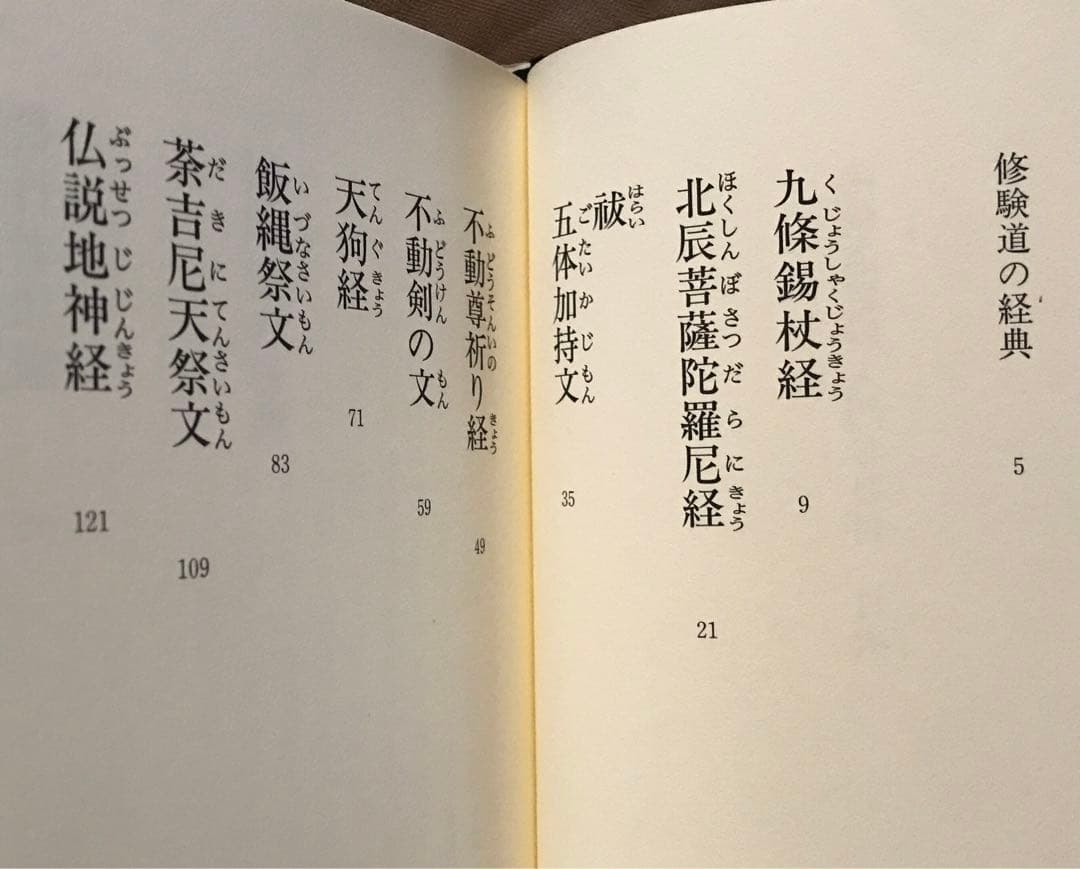 修験道の経典 5
九條錫杖経 くじょうしゃくじょうきょう 9
北辰菩薩陀羅尼経 ほくしんぼさつだらにきょう 21
祓 はらい
五体加持文 ごたいかじもん 35
不動尊祈り経 ふどうそんいのきょう 49
不動剣の文 ふどうけんもん 59
天狗経 てんぐきょう 71
飯縄祭文 いづなさいもん 83
荼吉尼天祭文 だきにてんさいもん 109
仏説地神経 ぶっせつじじんきょう 121